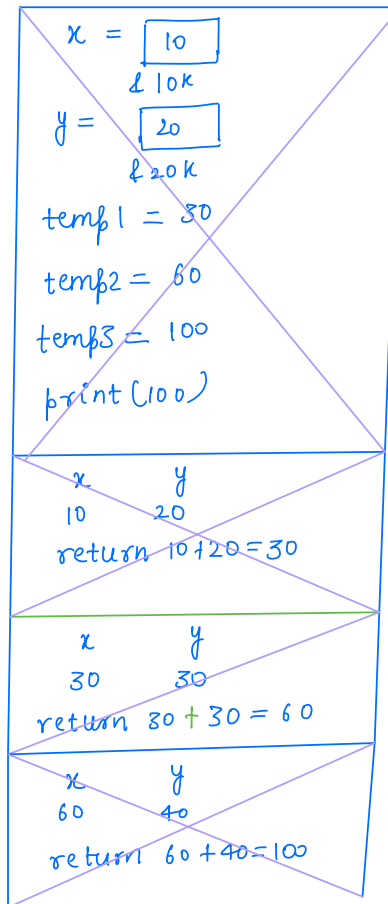 x = 10
& 10k
y = 20
& 20k
temp1 = 30
temp2 = 60
temp3 = 100
print(100)
x y
10 20
return 10+20=30
x y
30 30
return 30 + 30 = 60
x y
60 40
return 60+40=100